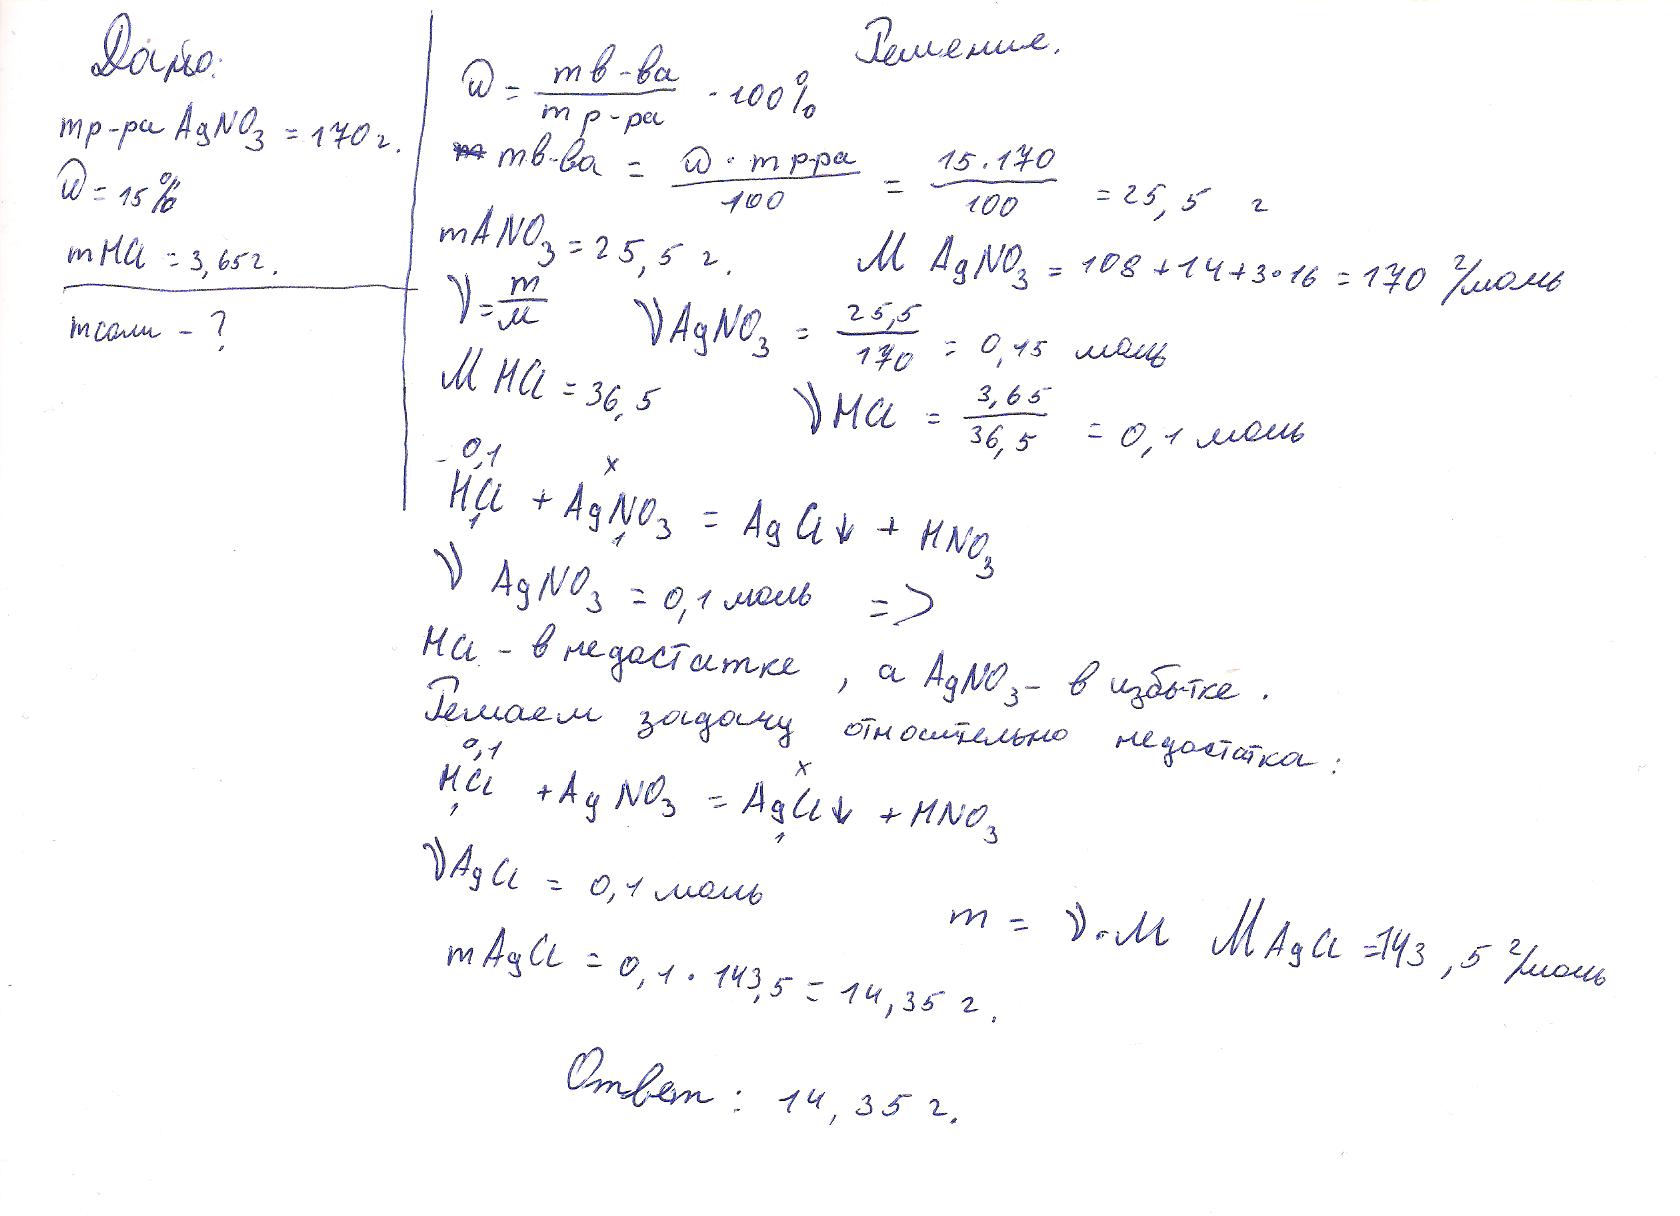 Дано:
m р-ра AgNO3 = 170 г.
ω = 15%
m HCl = 3,65 г.
m соли - ?
Решение.
ω = m в-ва / m р-ра · 100%
m в-ва = ω · m р-ра / 100 = 15 · 170 / 100 = 25,5 г
m ANO3 = 25,5 г.
M AgNO3 = 108 + 14 + 3·16 = 170 г/моль
ν = m / M
ν AgNO3 = 25,5 / 170 = 0,15 моль
M HCl = 36,5
ν HCl = 3,65 / 36,5 = 0,1 моль
0,1 x
HCl + AgNO3 = AgCl↓ + HNO3
1 1
ν AgNO3 = 0,1 моль =>
HCl - в недостатке, а AgNO3 - в избытке.
Решаем задачу относительно недостатка:
0,1 x
HCl + AgNO3 = AgCl↓ + HNO3
1 1
ν AgCl = 0,1 моль
m = ν · M M AgCl = 143,5 г/моль
m AgCl = 0,1 · 143,5 = 14,35 г.
Ответ: 14,35 г.